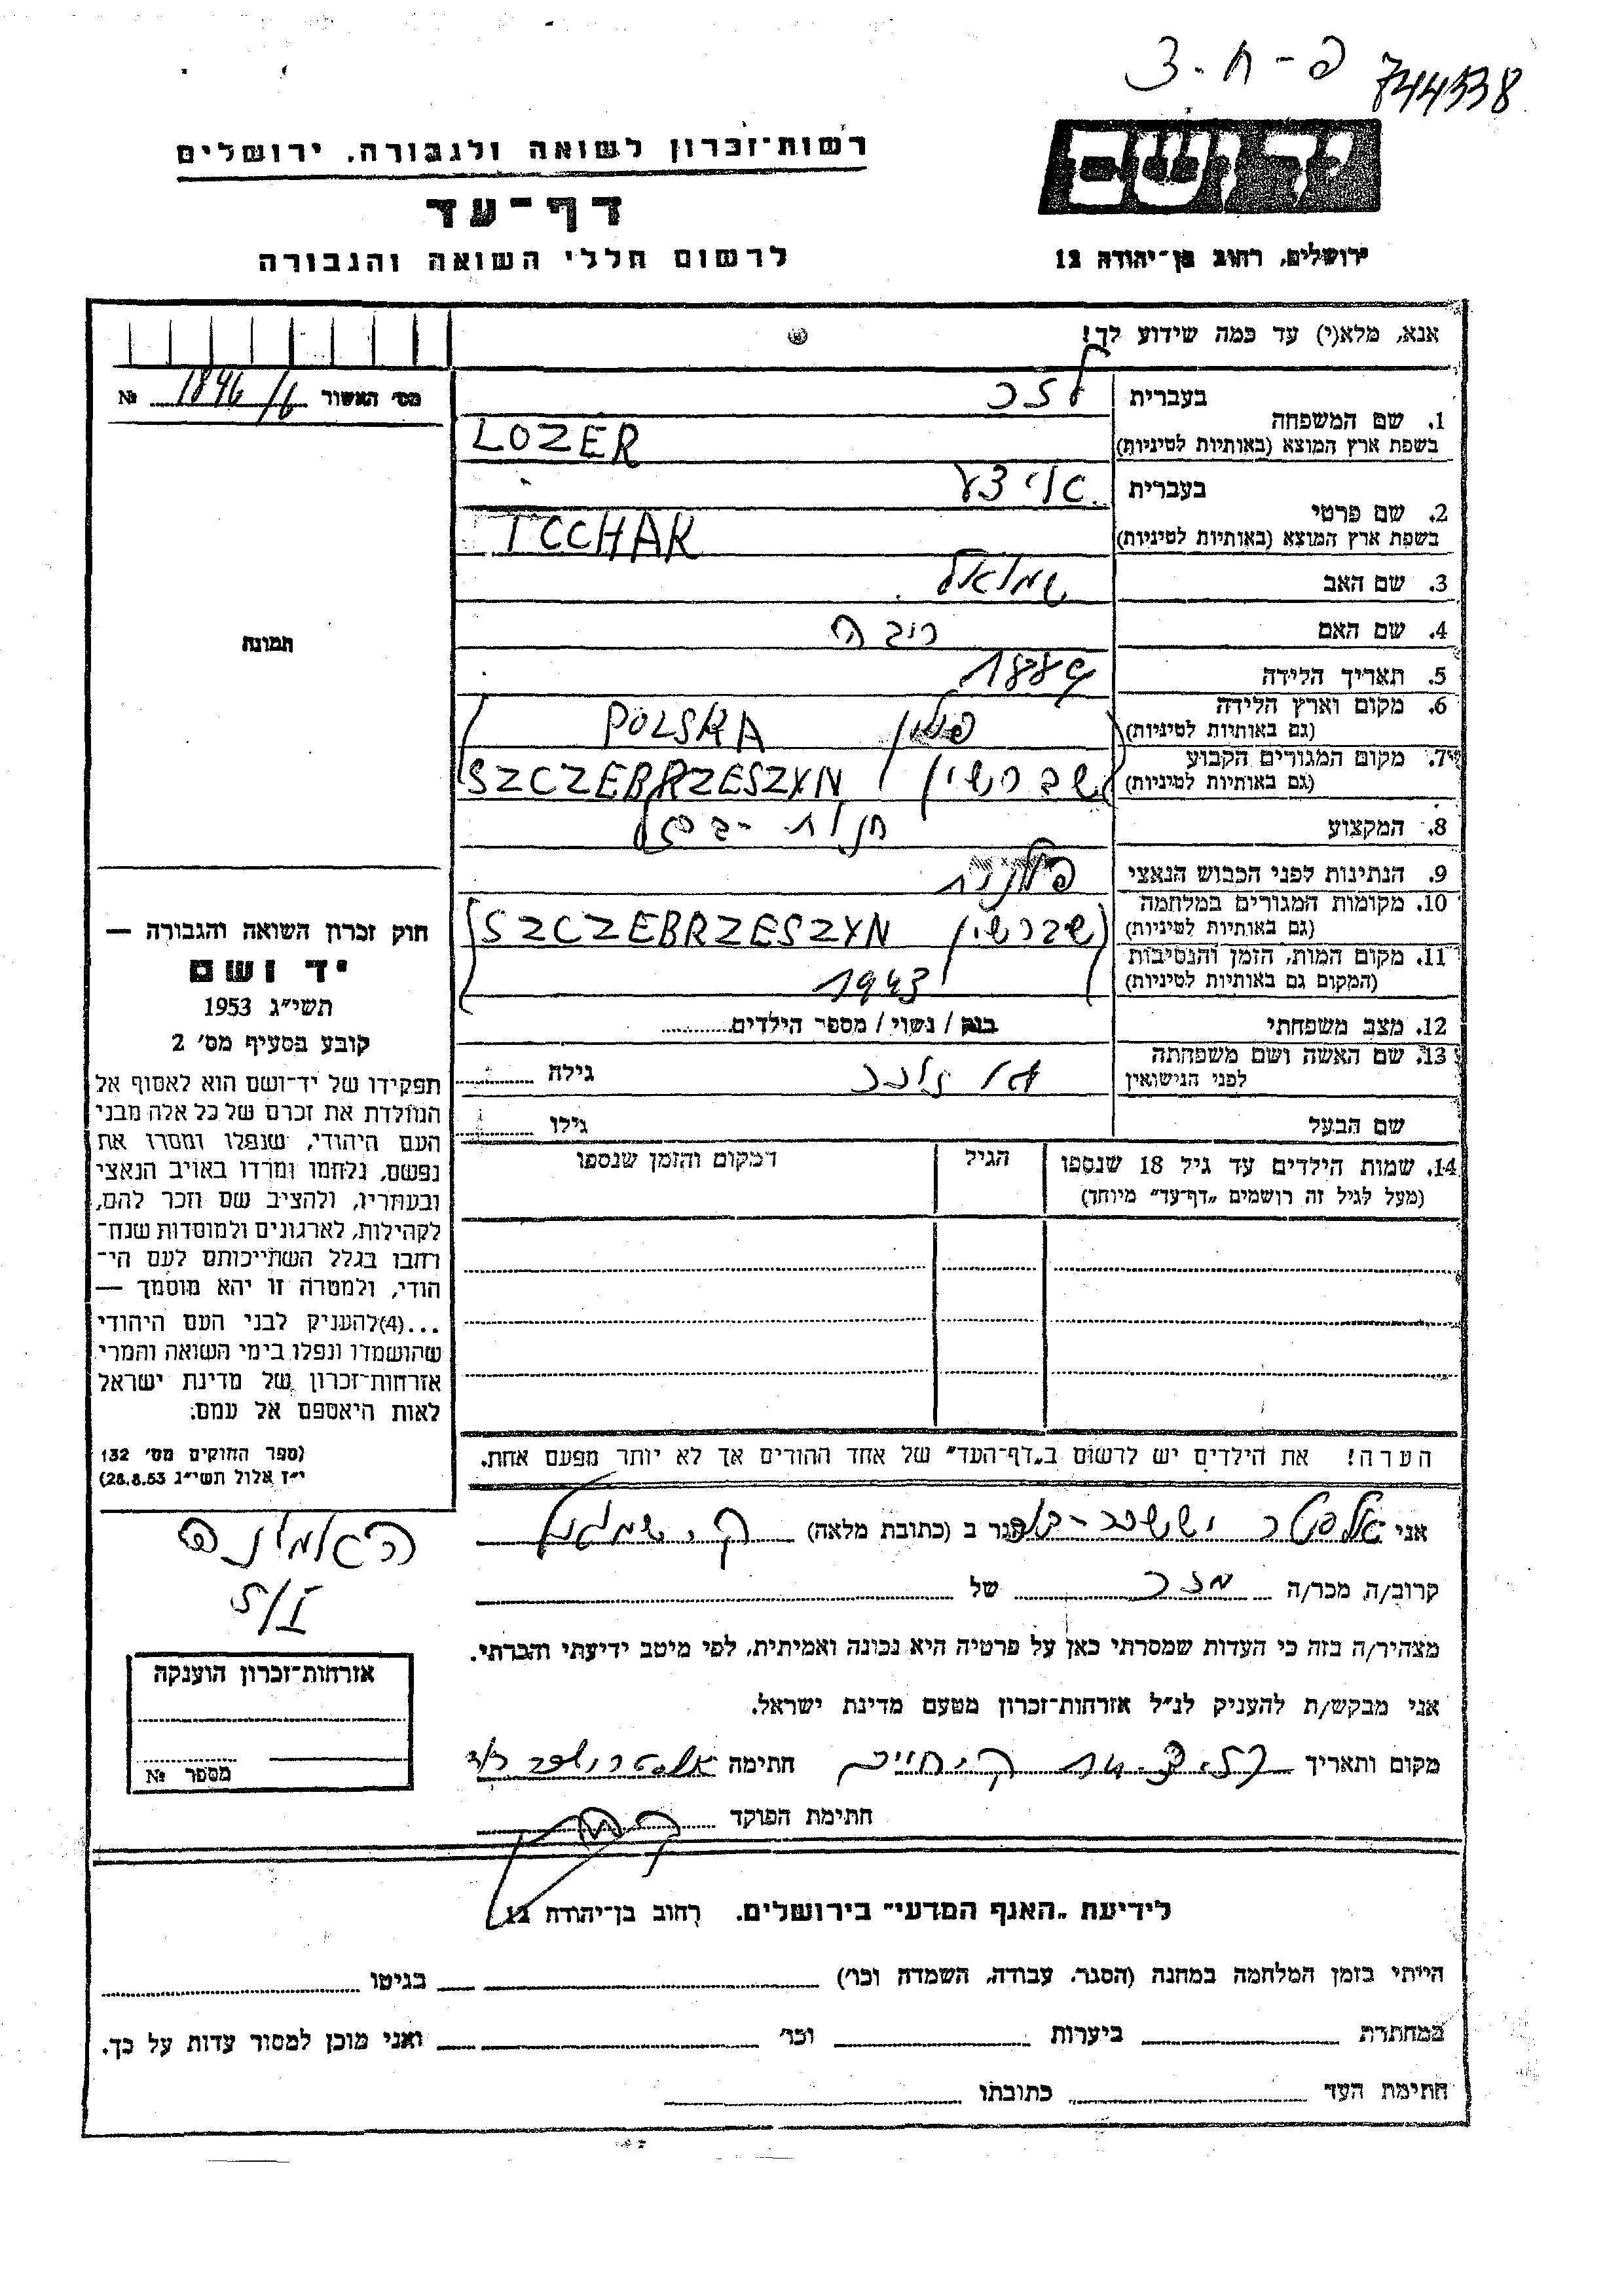 744538
רשות־זכרון לשואה ולגבורה, ירושלים
יד ושם
דף־עד
לרשום חללי השואה והגבורה
ירושלים, רחוב בן־יהודה 12
אנא, מלא(י) עד כמה שידוע לך!
מס׳ האשור 1846/6 №
1. שם המשפחה
בעברית לזר
בשפת ארץ המוצא (באותיות לטיניות) LOZER
2. שם פרטי
בעברית
בשפת ארץ המוצא (באותיות לטיניות) ICCHAK
3. שם האב שמואל
4. שם האם רבקה
5. תאריך הלידה 1889
6. מקום וארץ הלידה (גם באותיות לטיניות) פולין POLSKA
7. מקום המגורים הקבוע (גם באותיות לטיניות) שברשין SZCZEBRZESZYN
8. המקצוע חנות
9. הנתינות לפני הכבוש הנאצי פולנית
10. מקומות המגורים במלחמה (גם באותיות לטיניות) שברשין SZCZEBRZESZYN
11. מקום המות, הזמן והנסיבות (המקום גם באותיות לטיניות) 1943
12. מצב משפחתי רווק / נשוי / מספר הילדים
13. שם האשה ושם משפחתה לפני הנישואין גילה
שם הבעל גילו
14. שמות הילדים עד גיל 18 שנספו הגיל המקום והזמן שנספו
(מעל לגיל זה רושמים „דף־עד״ מיוחד)
הערה! את הילדים יש לרשום ב„דף־העד״ של אחד ההורים אך לא יותר מפעם אחת.
תמונה
חוק זכרון השואה והגבורה —
יד ושם
תשי״ג 1953
קובע בסעיף מס׳ 2
תפקידו של יד־ושם הוא לאסוף אל
המולדת את זכרם של כל אלה מבני
העם היהודי, שנפלו ומסרו את
נפשם, נלחמו ומרדו באויב הנאצי
ובעוזריו, ולהציב שם וזכר להם,
לקהילות, לארגונים ולמוסדות שנח־
רבו בגלל השתייכותם לעם הי־
הודי, ולמטרה זו יהא מוסמך —
...(4)להעניק לבני העם היהודי
שהושמדו ונפלו בימי השואה והמרי
אזרחות־זכרון של מדינת ישראל
לאות היאספם אל עמם.
(ספר החוקים מס׳ 132
י״ז אלול תשי״ג 28.8.53)
אני אלטר יששכר הגר ב (כתובת מלאה) ק. שמואל
קרוב/ה, מכר/ה מכר של
מצהיר/ה בזה כי העדות שמסרתי כאן על פרטיה היא נכונה ואמיתית, לפי מיטב ידיעתי והכרתי.
אני מבקש/ת להעניק לנ״ל אזרחות־זכרון מטעם מדינת ישראל.
מקום ותאריך ק. חיים חתימה
חתימת הפוקד
אזרחות־זכרון הוענקה
מספר №
לידיעת „האגף המדעי״ בירושלים, רחוב בן־יהודה 12
הייתי בזמן המלחמה במחנה (הסגר, עבודה, השמדה וכו׳) בגיטו
במחתרת ביערות וכו׳ ואני מוכן למסור עדות על כך.
חתימת העד כתובתו